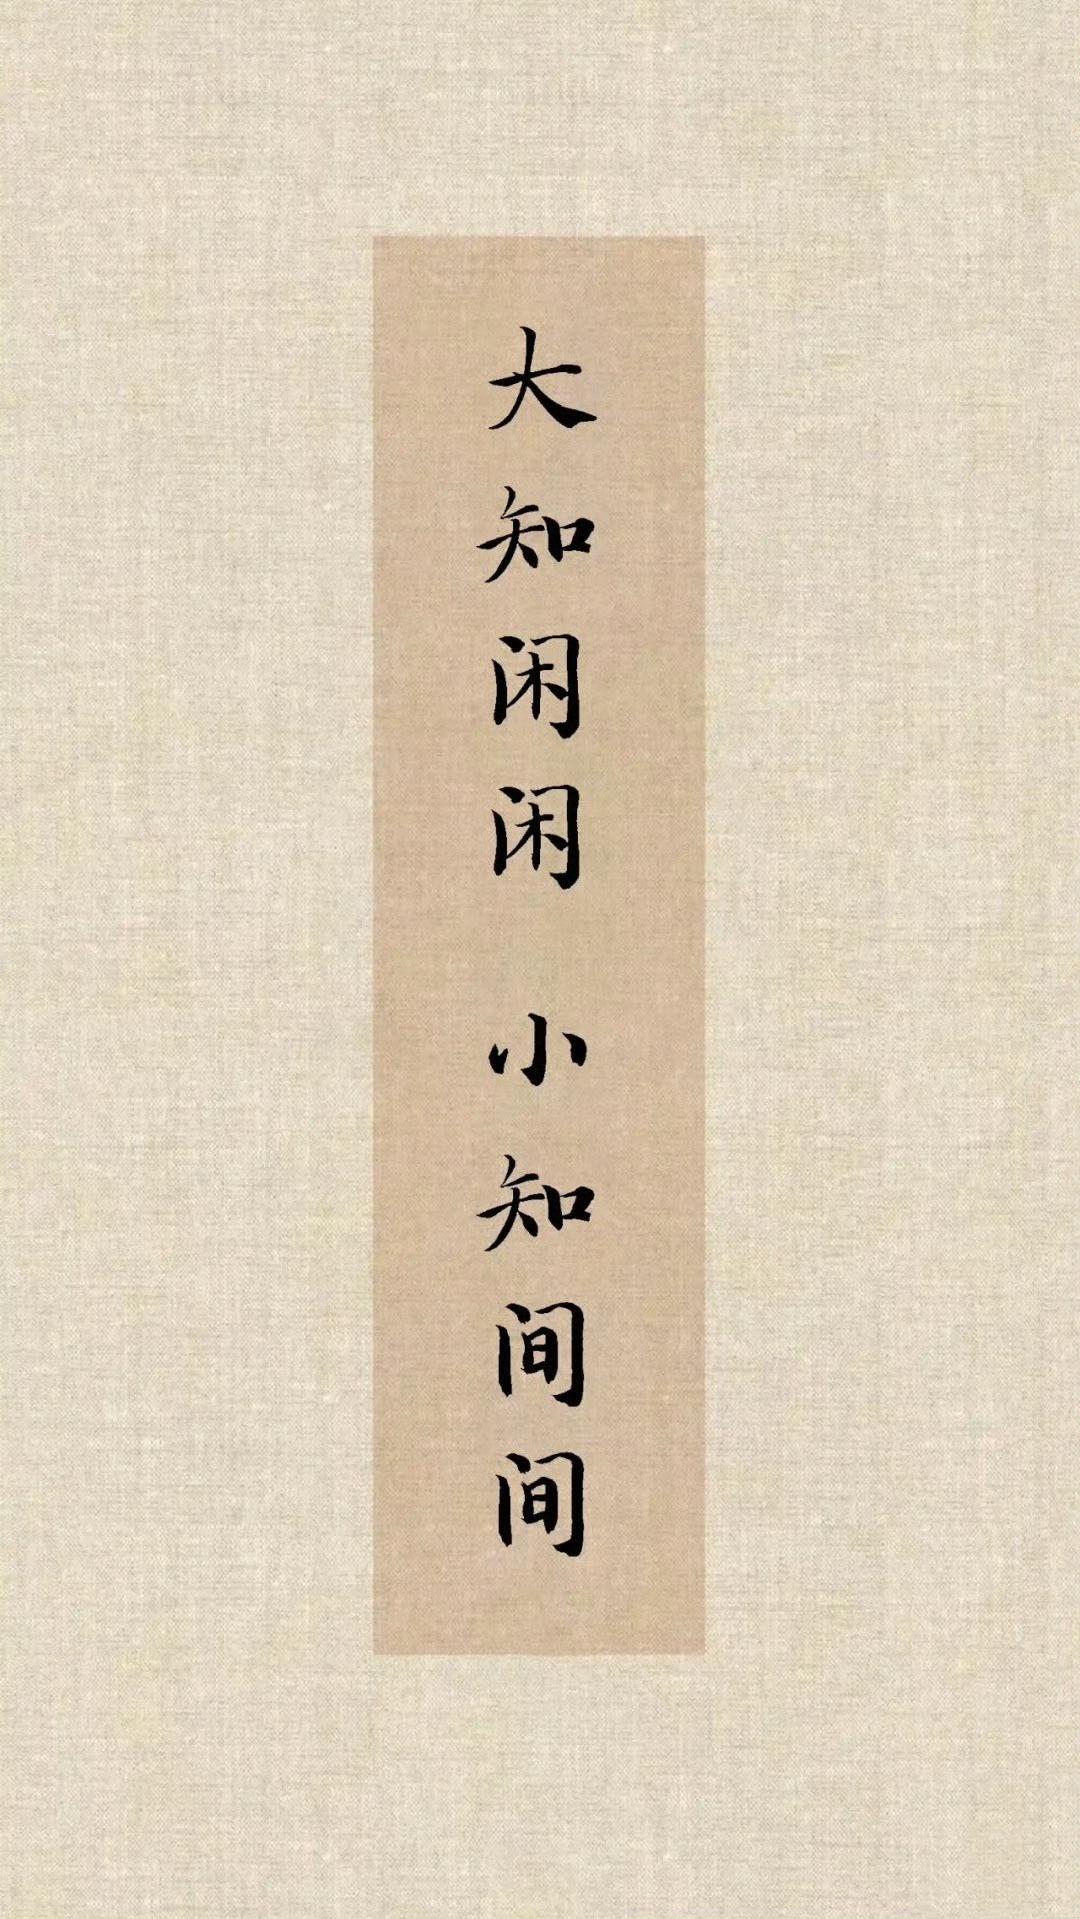 大知闲闲 小知间间